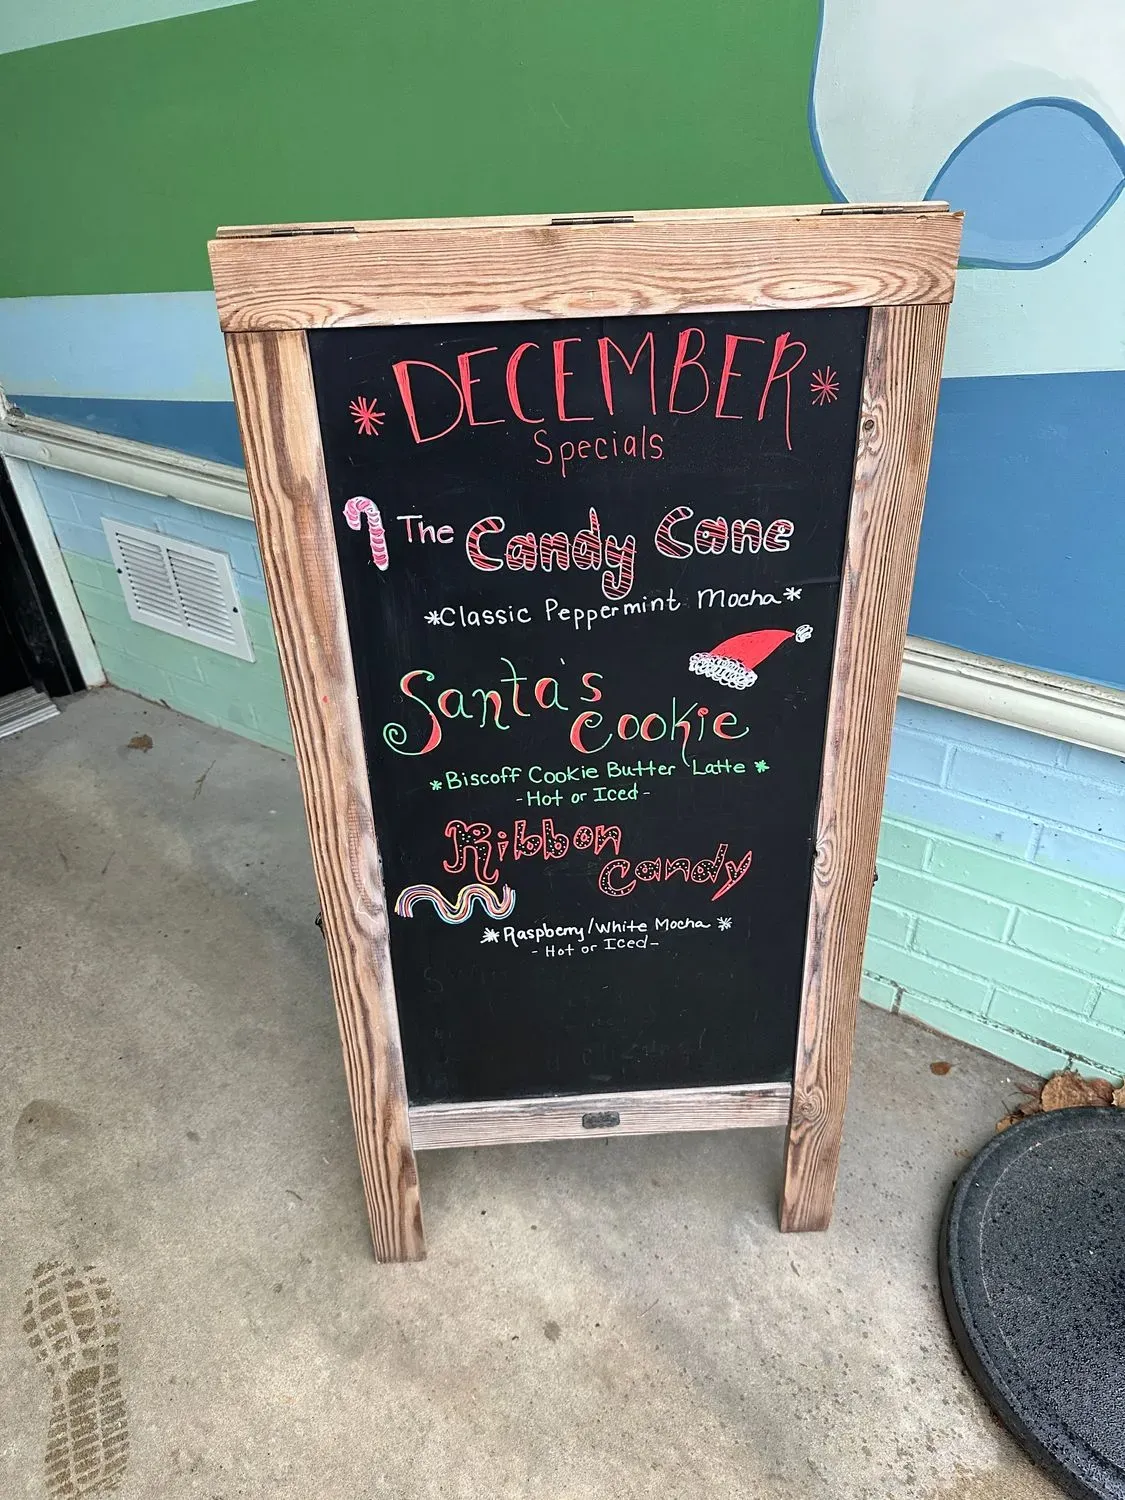 *DECEMBER*
Specials
The Candy Cane
*Classic Peppermint Mocha*
Santa's
Cookie
*Biscoff Cookie Butter Latte*
-Hot or Iced-
Ribbon
Candy
*Raspberry/White Mocha*
-Hot or Iced-